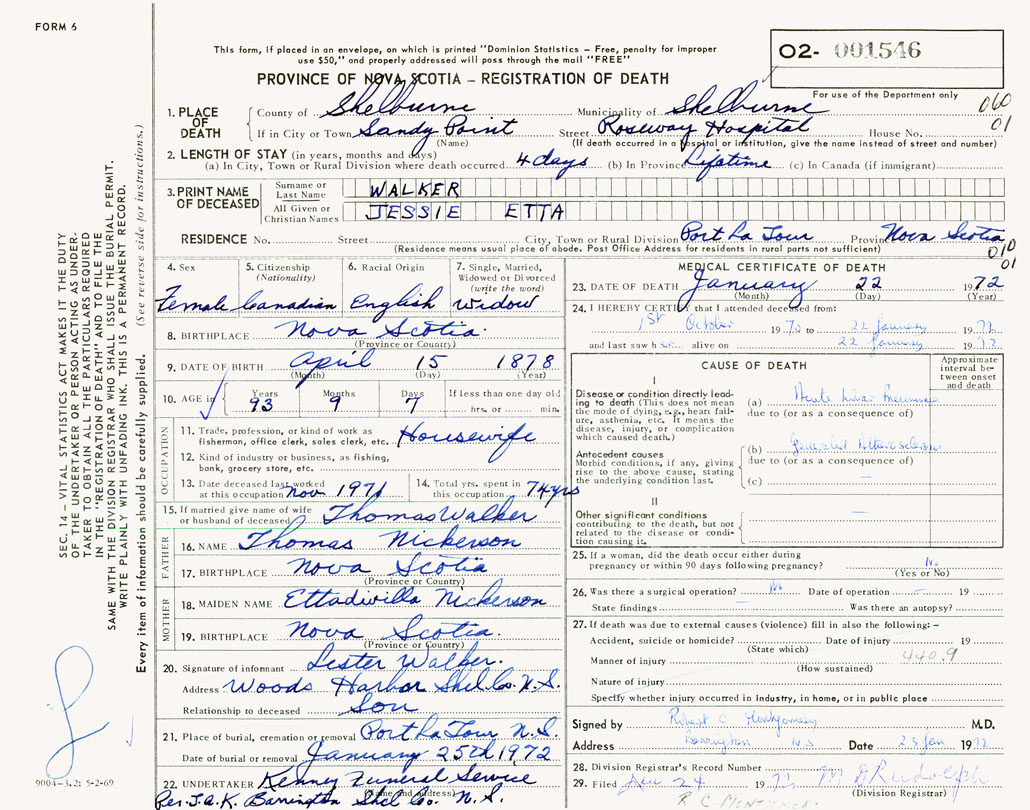 FORM 6
This form, if placed in an envelope, on which is printed "Dominion Statistics – Free, penalty for improper
use $50," and properly addressed will pass through the mail "FREE"
PROVINCE OF NOVA SCOTIA – REGISTRATION OF DEATH
O2- 001546
For use of the Department only
060
01
1. PLACE OF DEATH
County of Shelburne Municipality of Shelburne
If in City or Town Sandy Point Street Roseway Hospital House No.
(Name) (If death occurred in a hospital or institution, give the name instead of street and number)
2. LENGTH OF STAY (in years, months and days)
(a) In City, Town or Rural Division where death occurred 4 days (b) In Province Lifetime (c) In Canada (if immigrant)
3. PRINT NAME OF DECEASED
Surname or Last Name WALKER
All Given or Christian Names JESSIE ETTA
RESIDENCE No. Street City, Town or Rural Division Port La Tour Province Nova Scotia
(Residence means usual place of abode. Post Office Address for residents in rural parts not sufficient)
010
01
4. Sex Female
5. Citizenship (Nationality) Canadian
6. Racial Origin English
7. Single, Married, Widowed or Divorced (write the word) widow
8. BIRTHPLACE Nova Scotia.
(Province or Country)
9. DATE OF BIRTH April 15 1878
(Month) (Day) (Year)
10. AGE in Years 93 Months 9 Days 7 If less than one day
hrs. or min.
OCCUPATION
11. Trade, profession or kind of work as
fisherman, office clerk, sales clerk, etc. Housewife
12. Kind of industry or business, as fishing,
bank, grocery store, etc.
13. Date deceased last worked
at this occupation Nov 1971
14. Total yrs. spent in
this occupation 74 yrs
15. If married give name of wife
or husband of deceased Thomas Walker
FATHER
16. NAME Thomas Nickerson
17. BIRTHPLACE Nova Scotia
(Province or Country)
MOTHER
18. MAIDEN NAME Ettadivilla Nickerson
19. BIRTHPLACE Nova Scotia.
(Province or Country)
20. Signature of informant Lester Walker.
Address Woods Harbor Shel. Co. N.S.
Relationship to deceased Son
21. Place of burial, cremation or removal Port La Tour N.S.
Date of burial or removal January 25th 1972
22. UNDERTAKER Kenney Funeral Service
(Name and address)
Per. J.A.K. Barrington Shel Co. N.S.
MEDICAL CERTIFICATE OF DEATH
23. DATE OF DEATH January 22 1972
(Month) (Day) (Year)
24. I HEREBY CERTIFY that I attended deceased from:
1st October 1970 to 22 January 1972
and last saw her alive on 22 January 1972
CAUSE OF DEATH
Approximate interval between onset and death
I
Disease or condition directly leading to death (This does not mean
the mode of dying, e.g., heart failure, asthenia, etc. It means the
disease, injury, or complication
which caused death.)
(a) Acute Lobar Pneumonia
due to (or as a consequence of)
Antecedent causes
Morbid conditions, if any, giving
rise to the above cause, stating
the underlying condition last.
(b) Generalized Atherosclerosis
due to (or as a consequence of)
(c) —
II
Other significant conditions
contributing to the death, but not
related to the disease or condition causing it.
—
25. If a woman, did the death occur either during
pregnancy or within 90 days following pregnancy? No
(Yes or No)
26. Was there a surgical operation? No Date of operation — 19
State findings — Was there an autopsy?
27. If death was due to external causes (violence) fill in also the following: –
Accident, suicide or homicide? Date of injury 19
(State which)
440.9
Manner of injury
(How sustained)
Nature of injury
Specify whether injury occurred in industry, in home, or in public place
Signed by Robert C Montgomery M.D.
Address Barrington N S Date 23 Jan 1972
28. Division Registrar's Record Number
29. Filed Jan 24 1972 M D Rudolph
(Division Registrar)
R.C. MONTGOMERY
SEC. 14 – VITAL STATISTICS ACT MAKES IT THE DUTY
OF THE UNDERTAKER OR PERSON ACTING AS UNDER-
TAKER TO OBTAIN ALL THE PARTICULARS REQUIRED
IN THE "REGISTRATION OF DEATH" AND TO FILE THE
SAME WITH THE DIVISION REGISTRAR WHO SHALL ISSUE THE BURIAL PERMIT.
WRITE PLAINLY WITH UNFADING INK. THIS IS A PERMANENT RECORD.
Every item of information should be carefully supplied. (See reverse side for instructions.)
9004-3.2: 5-2-69